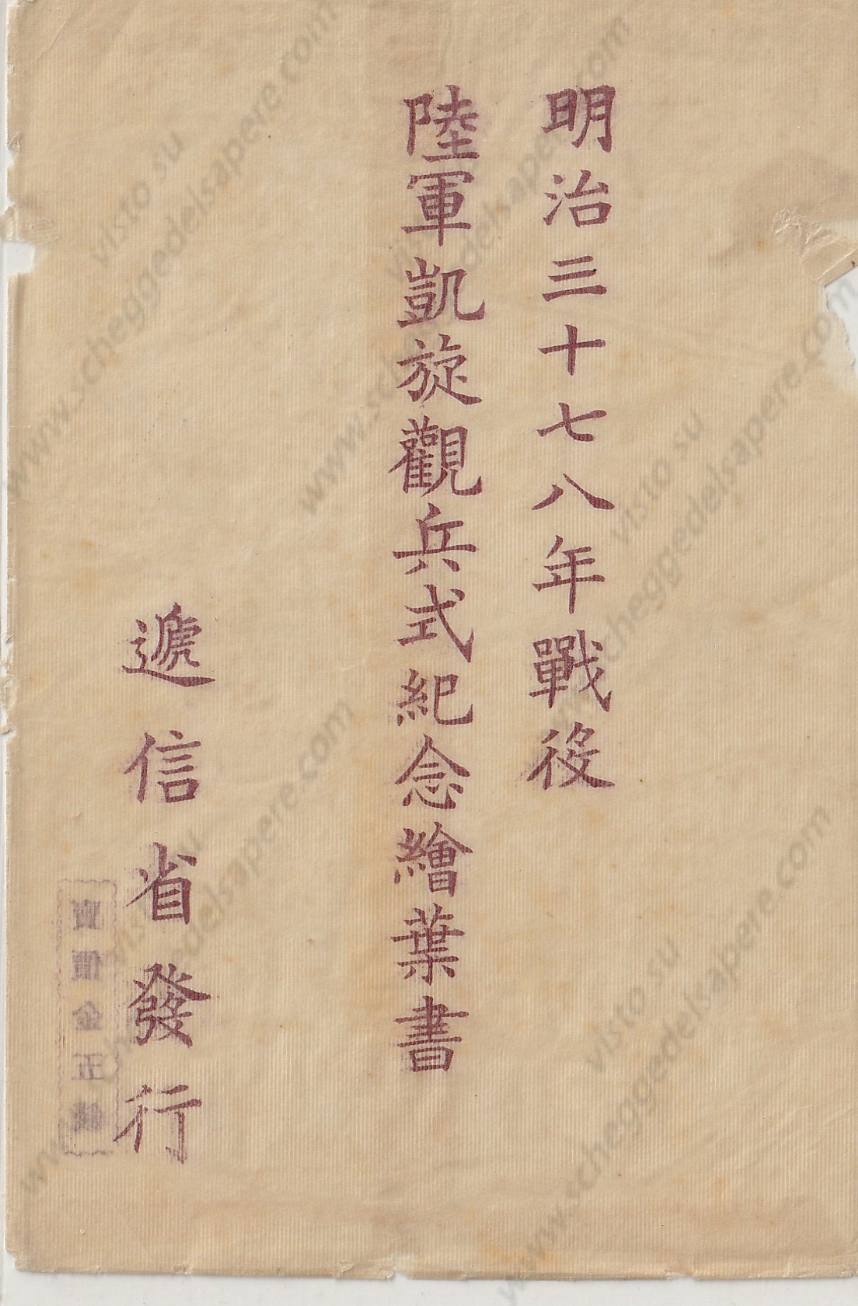 明治三十七八年戰役
陸軍凱旋觀兵式紀念繪葉書
遞信省發行
賣價金五錢
visto su
www.scheggedelsapere.com
visto su
www.scheggedelsapere.com
visto su
www.scheggedelsapere.com
visto su
www.scheggedelsapere.com
visto su
www.scheggedelsapere.com